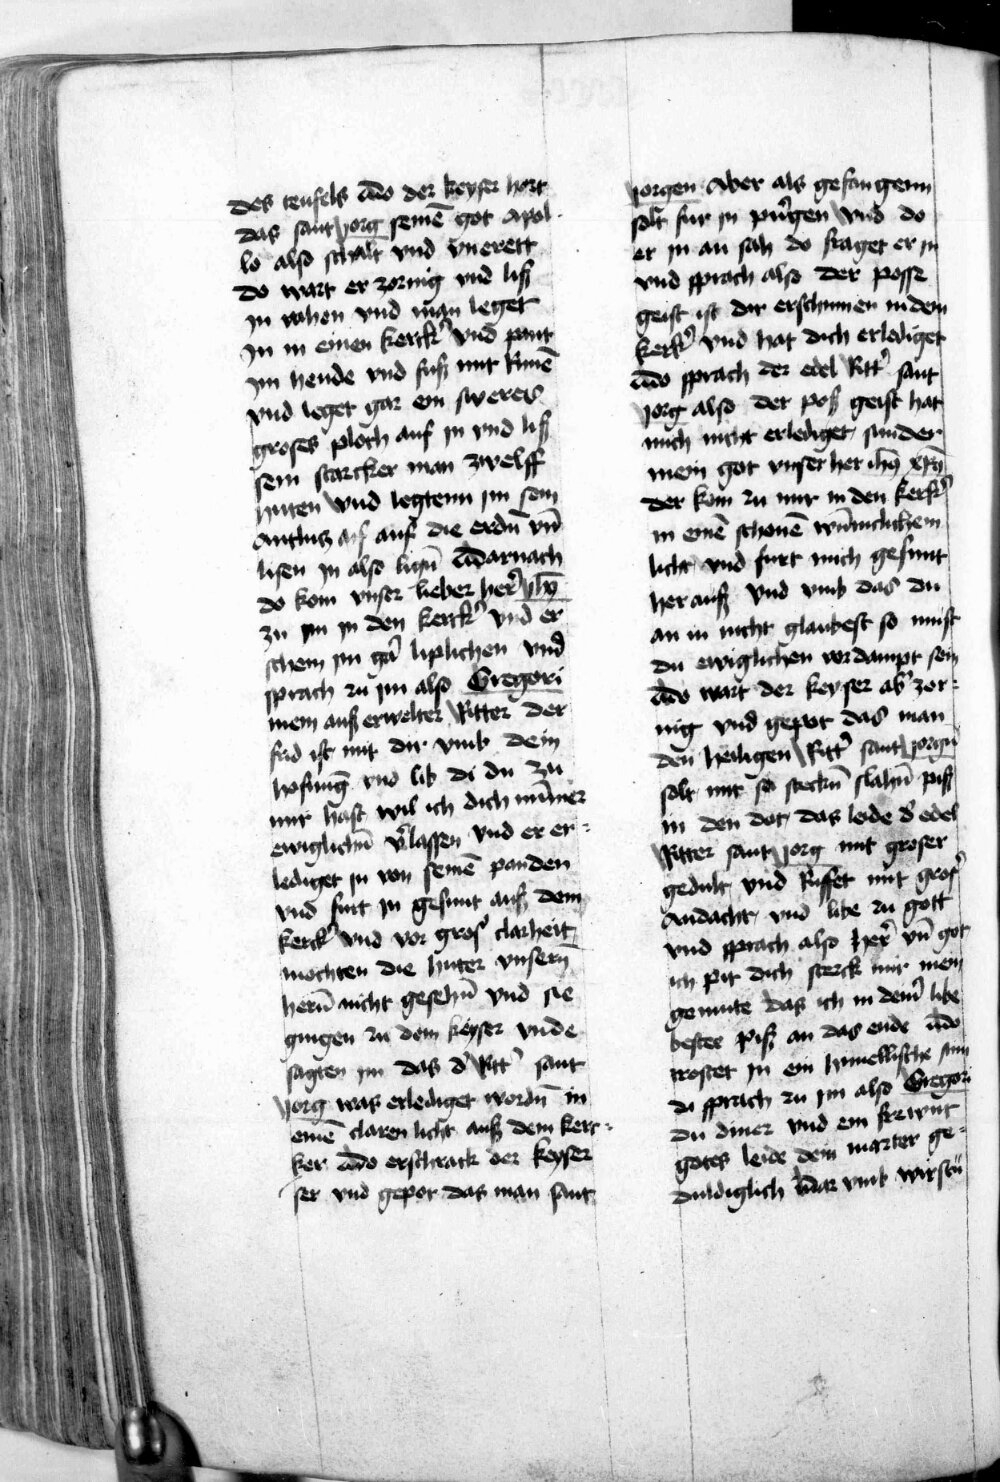 des teufels Vdo der keyser hort
das sant jorg seinē got Apol-
lo also schalt vnd vnerett
do wart er zornig vnd liß
in vahen vnd man leget
In in einen kerck̉ vnd pant
Im hende vnd fuß mit Rimē
vnd leget gar ein sweres
groses ploch auf in vnd liß
sein starcker man zwelff
huten Vnd legtenn im sein
Antlutz auf die erdn̄ vn̄
lisen in also lign̄ Vdarnach
do kom vnser lieber her̉ ihū
zu im in den kerck̉ Vnd er
schein im gā liplichen vnd
sprach zu im also Gregori
mein auß erwelter Ritter der
frid ist mit dir vmb dein
hofnūg vnd lib di du zu
mir hast wil ich dich nȳmer
ewiglichn̄ v̉lassen vnd er er=
lediget in von seinē panden
vnd furt in gesunt auß dem
kerck̉ Vnd vor gros̉ clarheit
mochten die huter vnsern̄
hern̄ nicht gesehn̄ vnd sie
gingen zu dem keyser vnde
sagten im das d̉ Ritt̉ sant
jorg was erlediget wordn̄ in
einē claren licht auß dem kerc=
ker Vdo erschrack der keyser
ser vnd gepot das man sant
jorgen Aber als gefangenn
solt fur in pringen Vnd do
er in an sah do fraget er in
vnd sprach also der posse
geist ist dir erschinnen in dem
kerk̉ Vnd hat dich erlediget
Vdo sprach der edel Ritt̉ sant
jorg also der poß geist hat
mich nicht erlediget sunder
mein got vnser her ihū xp̄ū
der kom zu mir in den kerk̉
in einē schonē wūniclichem
licht Vnd furt mich gesunt
her auß Vnd vmb das du
an in nicht glaubest so must
du ewiglichen vordampt sein
Vdo wart der keyser ab̉ zor=
nig vnd gepot das man
den heiligen Ritt̉ sant jorgn̄
solt mit steckn̄ slahn̄ piß
in den dot das leide d̉ edel
Ritter sant jorg mit groser
gedult Vnd Ruffet mit gros̉
Andacht vnd libe zu gott
vnd sprach also her̉ vn̄ got
ich pit dich sterck mir mein
gemute das ich in deinr̄ libe
bestee piß an das ende Vdo
trostet in ein himelische stim
di sprach zu im also Gregori
du diner vnd ein
gotes leide dein marter ge=
duldiglich Vdar vmb wirstu